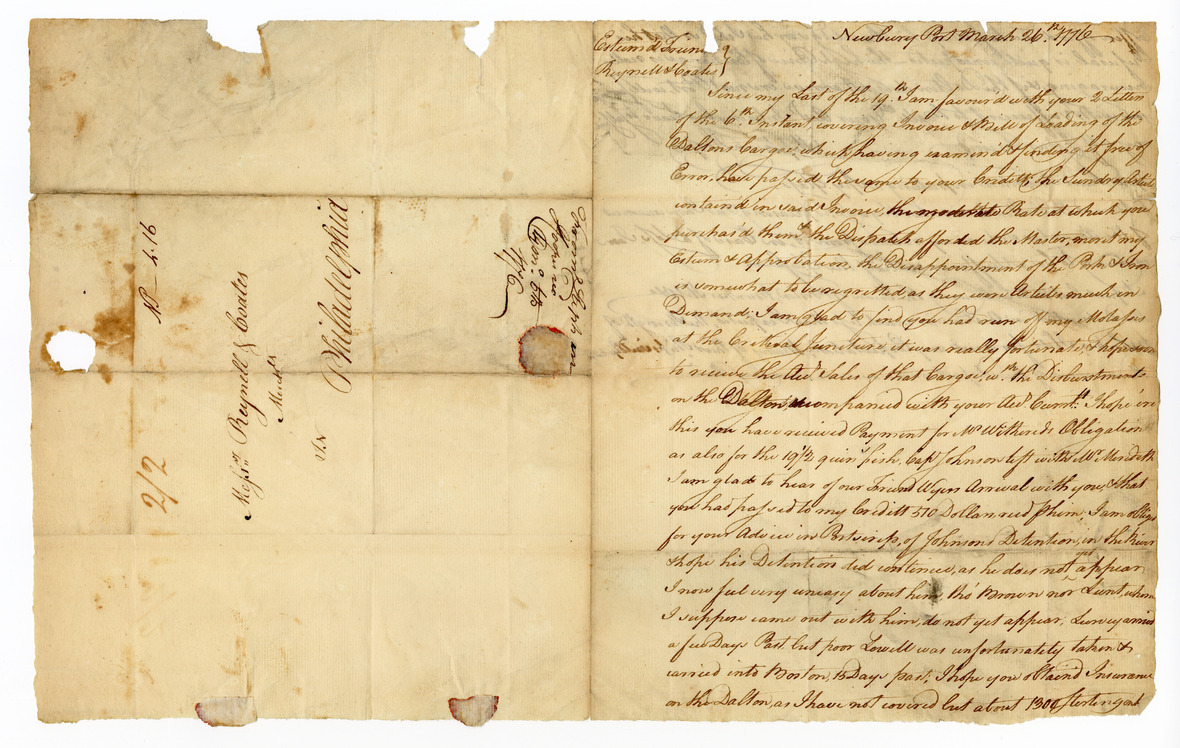 NP 4.16
2/2
Messrs Reynell & Coates
Merchts
In
Philadelphia
1776
Newbury Port March 26.th 1776
Esteemd Friends
Reynell & Coates
Since my Last of the 19.th I am favour'd with your 2 Letters
of the 6th Instant covering Invoice & Bill of Loading of the
Daltons Cargoe, which having examind & finding it free of
Error, have passed the same to your Creditt, the Sundry Articles
containd in said Invoice, the moderate Rate at which you
purchasd them & the Dispatch afforded the Master, merit my
Esteem & Approbation, the Disappointment of the Pork & Iron
is somewhat to be regretted, as they were Articles much in
Demand; I am glad to find you had run of my Molasses
at the Critical Juncture, it was really fortunate, & hope soon
to receive the Acct. Sales of that Cargoe, wth. the Disburstments
on the Dalton, accompanied with your Acct. Currtt. I hope 'ere
this you have received Payment for Mr Witherids Obligation
as also for the 19 1/2 quintl fish, Capt Johnson left with Mr. Meredith
I am glad to hear of our Friend Wyers Arrival with you, & that
you had passed to my Creditt 510 Dollars recd of him, I am oblig'd
for your Advice in Postscript, of Johnsons Detention, in the River
& hope his Detention did continue, as he does not yet appear,
I now feel very uneasy about him, tho' Brown nor Lunt, whom
I suppose came out with him, do not yet appear, Lurvey arrivd
a few Days Past. but poor Lowell was unfortunately taken &
carried into Boston, 15 Days past; I hope you obtaind Insurance
on the Dalton, as I have not covered but about 1300 Sterling out